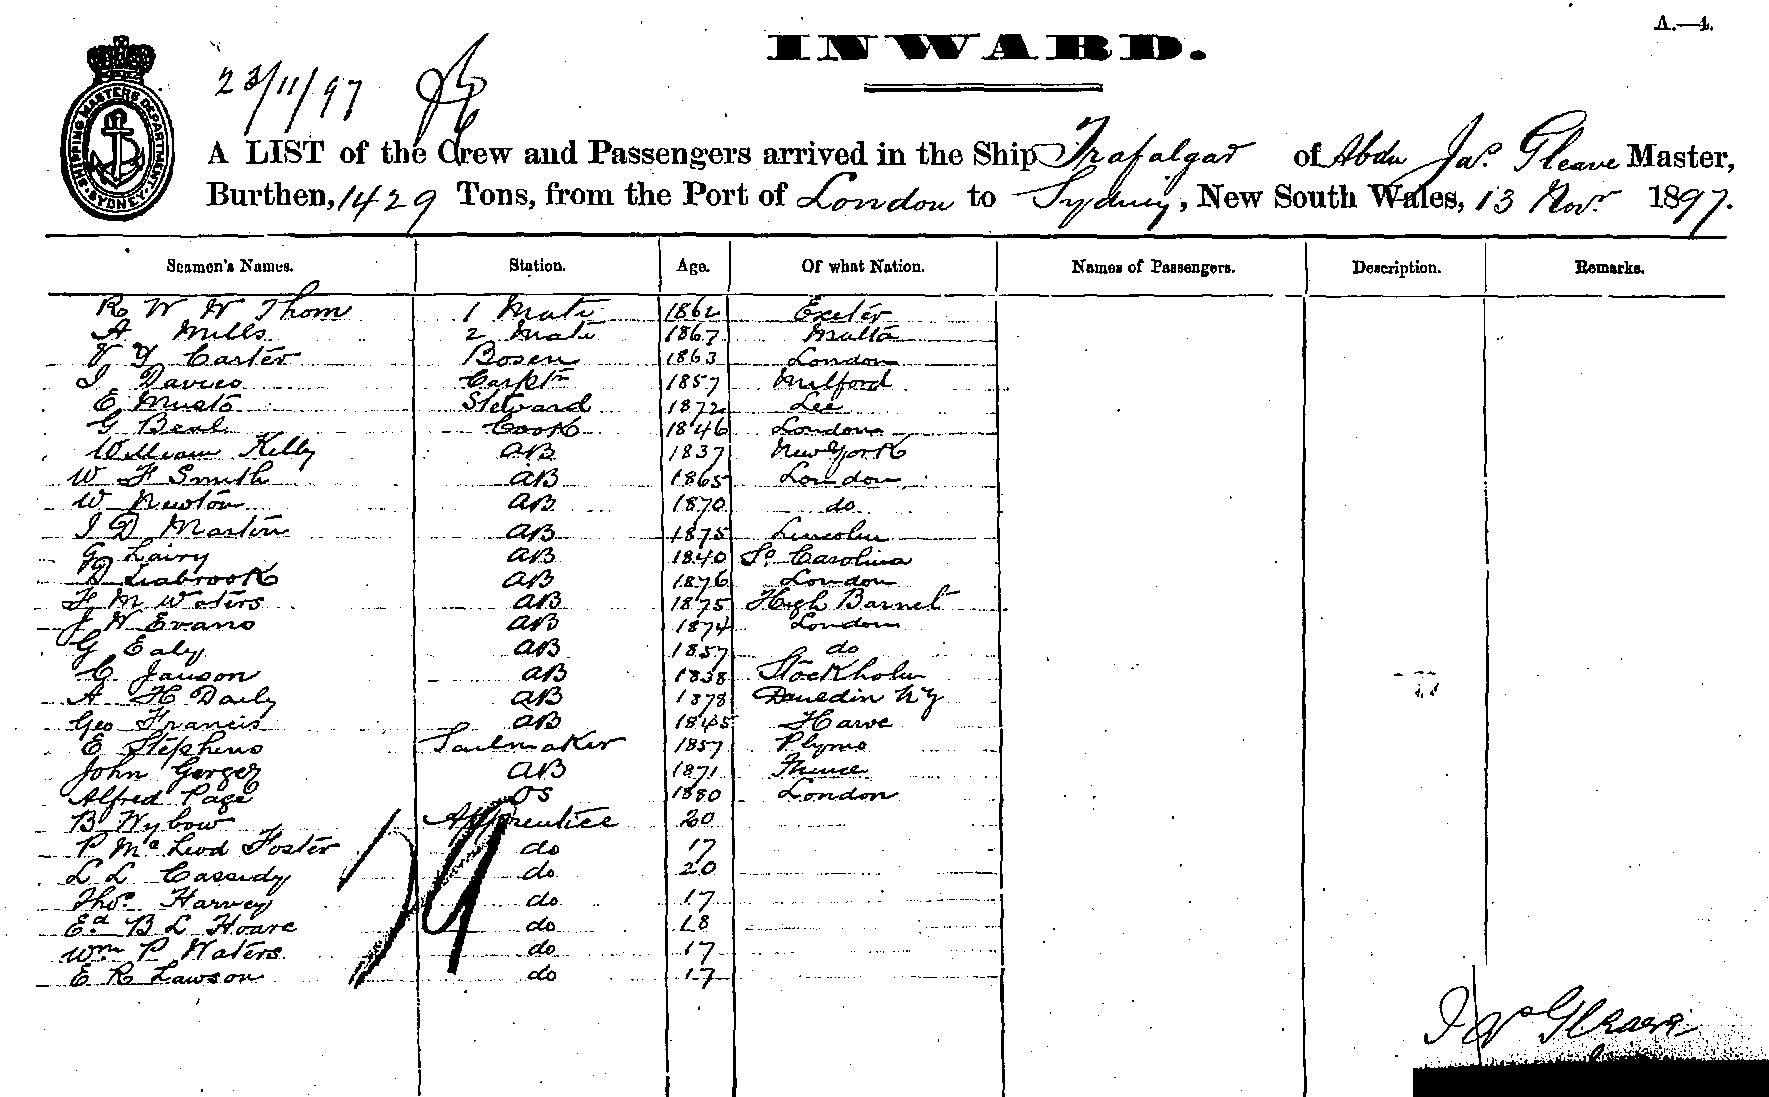 A.—4.
INWARD.
SHIPPING MASTERS DEPARTMENT SYDNEY
23/11/97
A LIST of the Crew and Passengers arrived in the Ship Trafalgar of Abdn Jas. Gleave Master,
Burthen, 1429 Tons, from the Port of London to Sydney, New South Wales, 13 Novr 1897.
Seamen's Names. Station. Age. Of what Nation. Names of Passengers. Description. Remarks.
R W W Thom 1 Mate 1862 Exeter
A Mills 2 Mate 1867 Malta
Carter Bosen 1863 London
Davies Carptr 1857 Milford
E Musto Steward 1872 Lee
G Beal Cook 1846 London
William Kelly AB 1837 New York
W F Smith AB 1865 London
W Newton AB 1870 do
J D Martin AB 1875 Lincoln
G Lairy AB 1840 So Carolina
Seabrook AB 1876 London
F M Waters AB 1875 High Barnet
J W Evans AB 1874 London
G Ealy AB 1857 do
C. Janson AB 1838 Stockholm
A H Daily AB 1878 Dunedin NZ
Geo Francis AB 1845 Harve
E Stephens Sailmaker 1857 Plymo
John Gerger AB 1871 Fiume
Alfred Page OS 1880 London
B Wybow Apprentice 20
P Mc Leod Foster do 17
L L Cassidy do 20
Thos. Harvey do 17
Ed. B L Hoare do 18
Wm P Waters do 17
E R Lawson do 17
29
Gleave